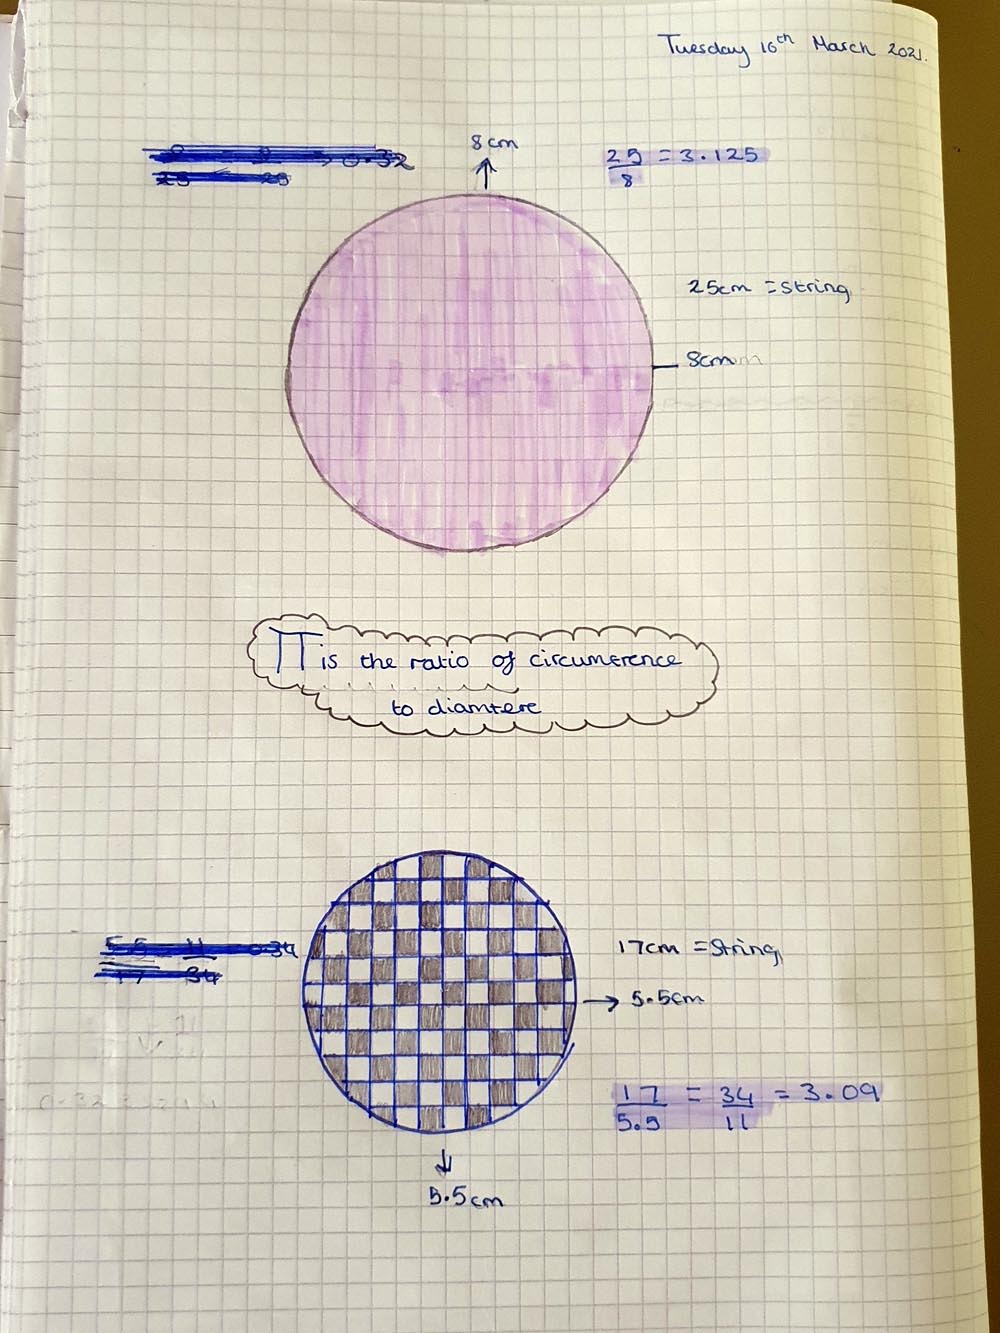 Tuesday 16th March 2021.
8cm
25/8 = 3.125
25cm = string
8cm
TT is the ratio of circumerence
to diamtere
17cm = string
5.5cm
17/5.5 = 34/11 = 3.09
5.5cm